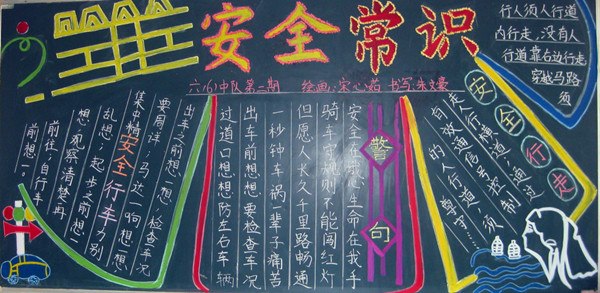 安全常识
六(6)中队第二期 绘画:宋心茹 书写
行人须人行道
内行走,没有人
行道靠右边行走
穿越马路
须
安全行走
走行横道;通过
通信号控制
的人行道;须
遵守
警句
安全在我心生命在我手
骑车守规则不能闯红灯
但愿人长久千里路畅通
一秒钟车祸一辈子痛苦
出车前想想要检查车况
过道口想想防左右车辆
安全行车
出车之前想一想 检查车况
要周详 马达一响想一想
集中精力别
乱想 起步之前想一
想 观察清楚再
前往 自行车
前想一